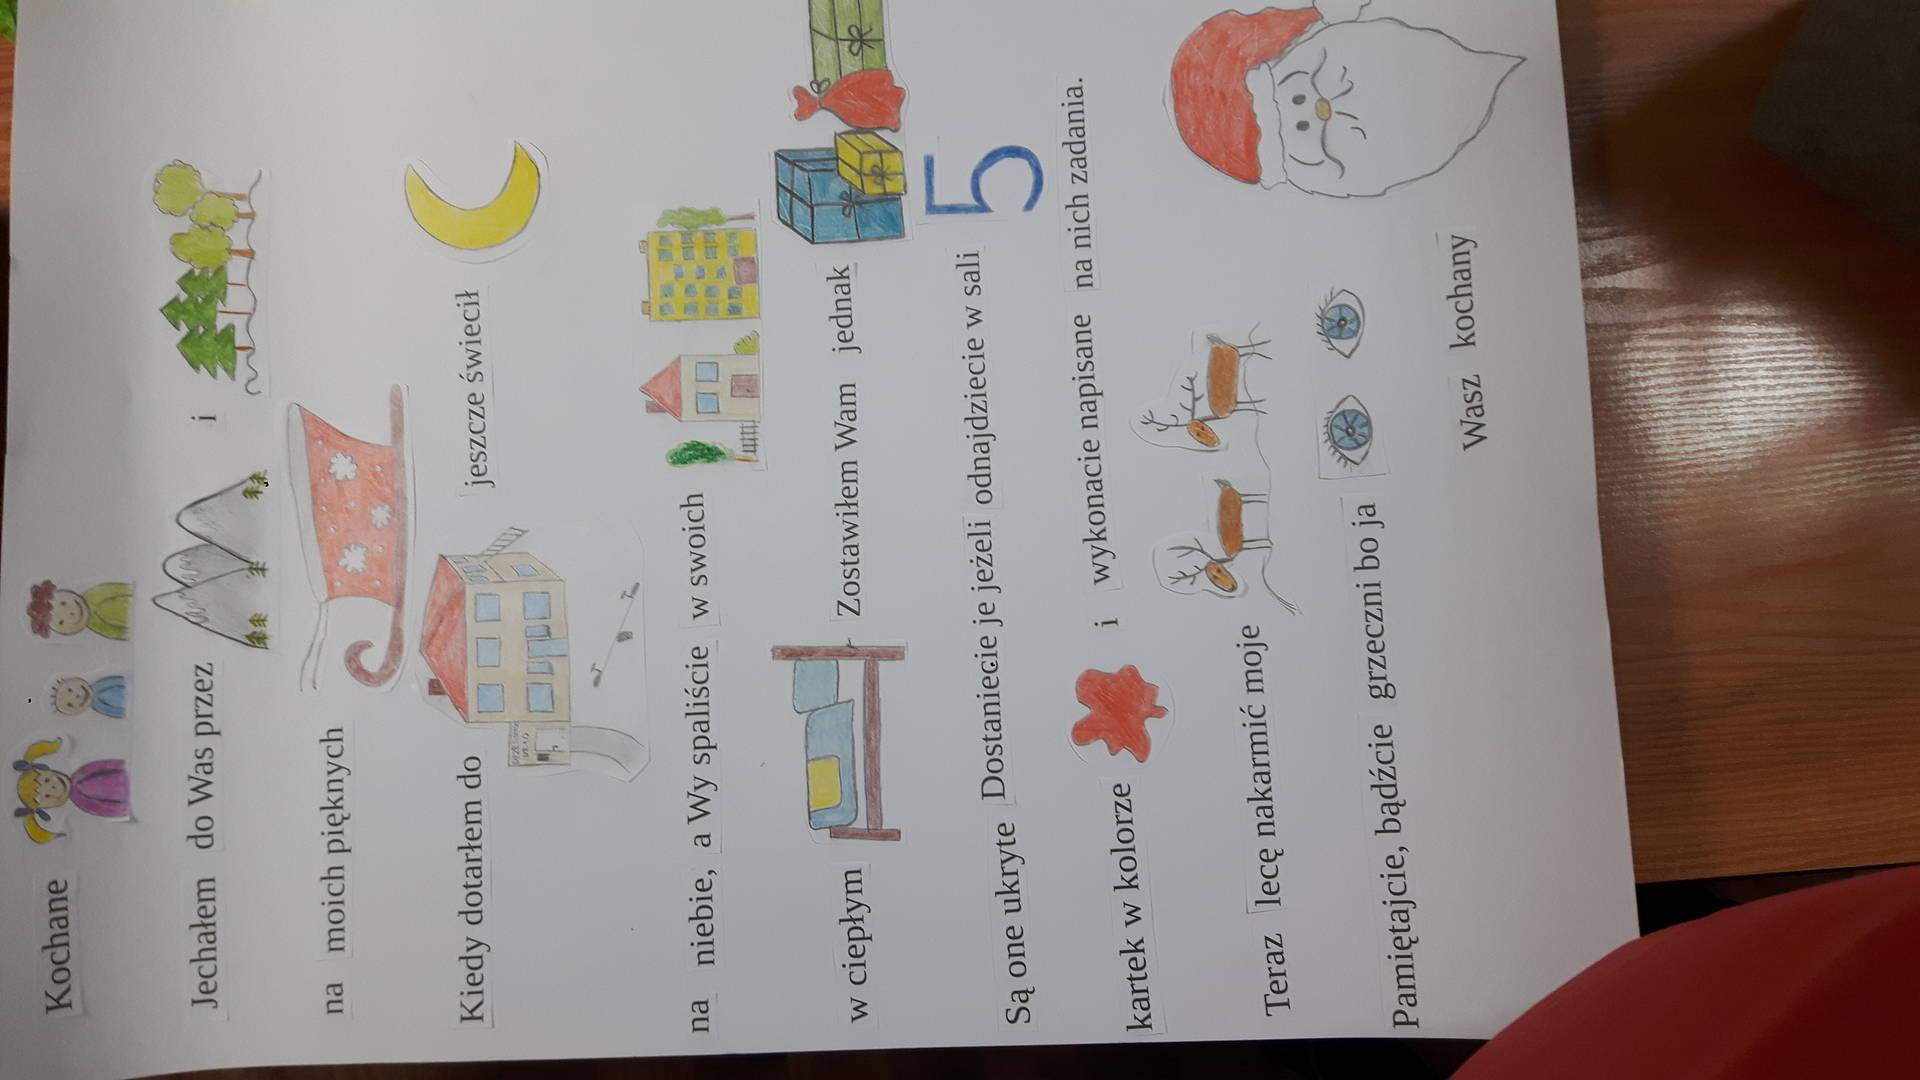 Kochane
Jechałem do Was przez i
na moich pięknych
Kiedy dotarłem do jeszcze świecił
na niebie, a Wy spaliście w swoich
w ciepłym Zostawiłem Wam jednak
Są one ukryte Dostaniecie je jeżeli odnajdziecie w sali 5
kartek w kolorze i wykonacie napisane na nich zadania.
Teraz lecę nakarmić moje
Pamiętajcie, bądźcie grzeczni bo ja
Wasz kochany